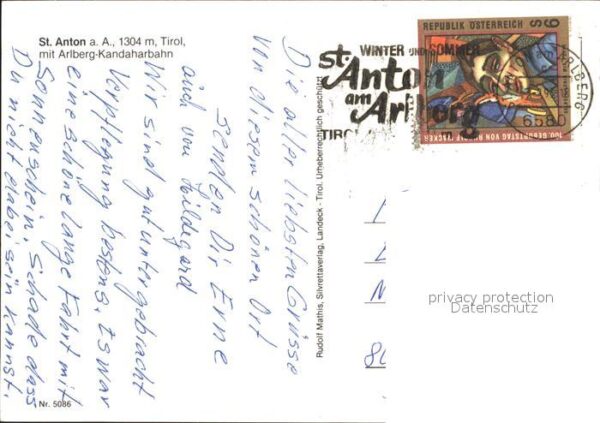 St. Anton a. A., 1304 m, Tirol,
mit Arlberg-Kandaharbahn
Die aller liebsten Grüsse
von diesem schönen Ort
senden Dir Erne
auch von Hildegard
Wir sind gut untergebracht
Verpflegung bestens, Es war
eine schöne lange Fahrt mit
Sonnenschein, Schade dass
Du nicht dabei sein kannst.
Nr. 5086
Rudolf Mathis, Silvrettaverlag, Landeck - Tirol. Urheberrechtlich geschützt
WINTER UND SOMMER
St. Anton
am
Arlberg
TIROL
REPUBLIK ÖSTERREICH S 6
100. GEBURTSTAG VON RUDOLF WACKER
ARLBERG
6580
privacy protection
Datenschutz